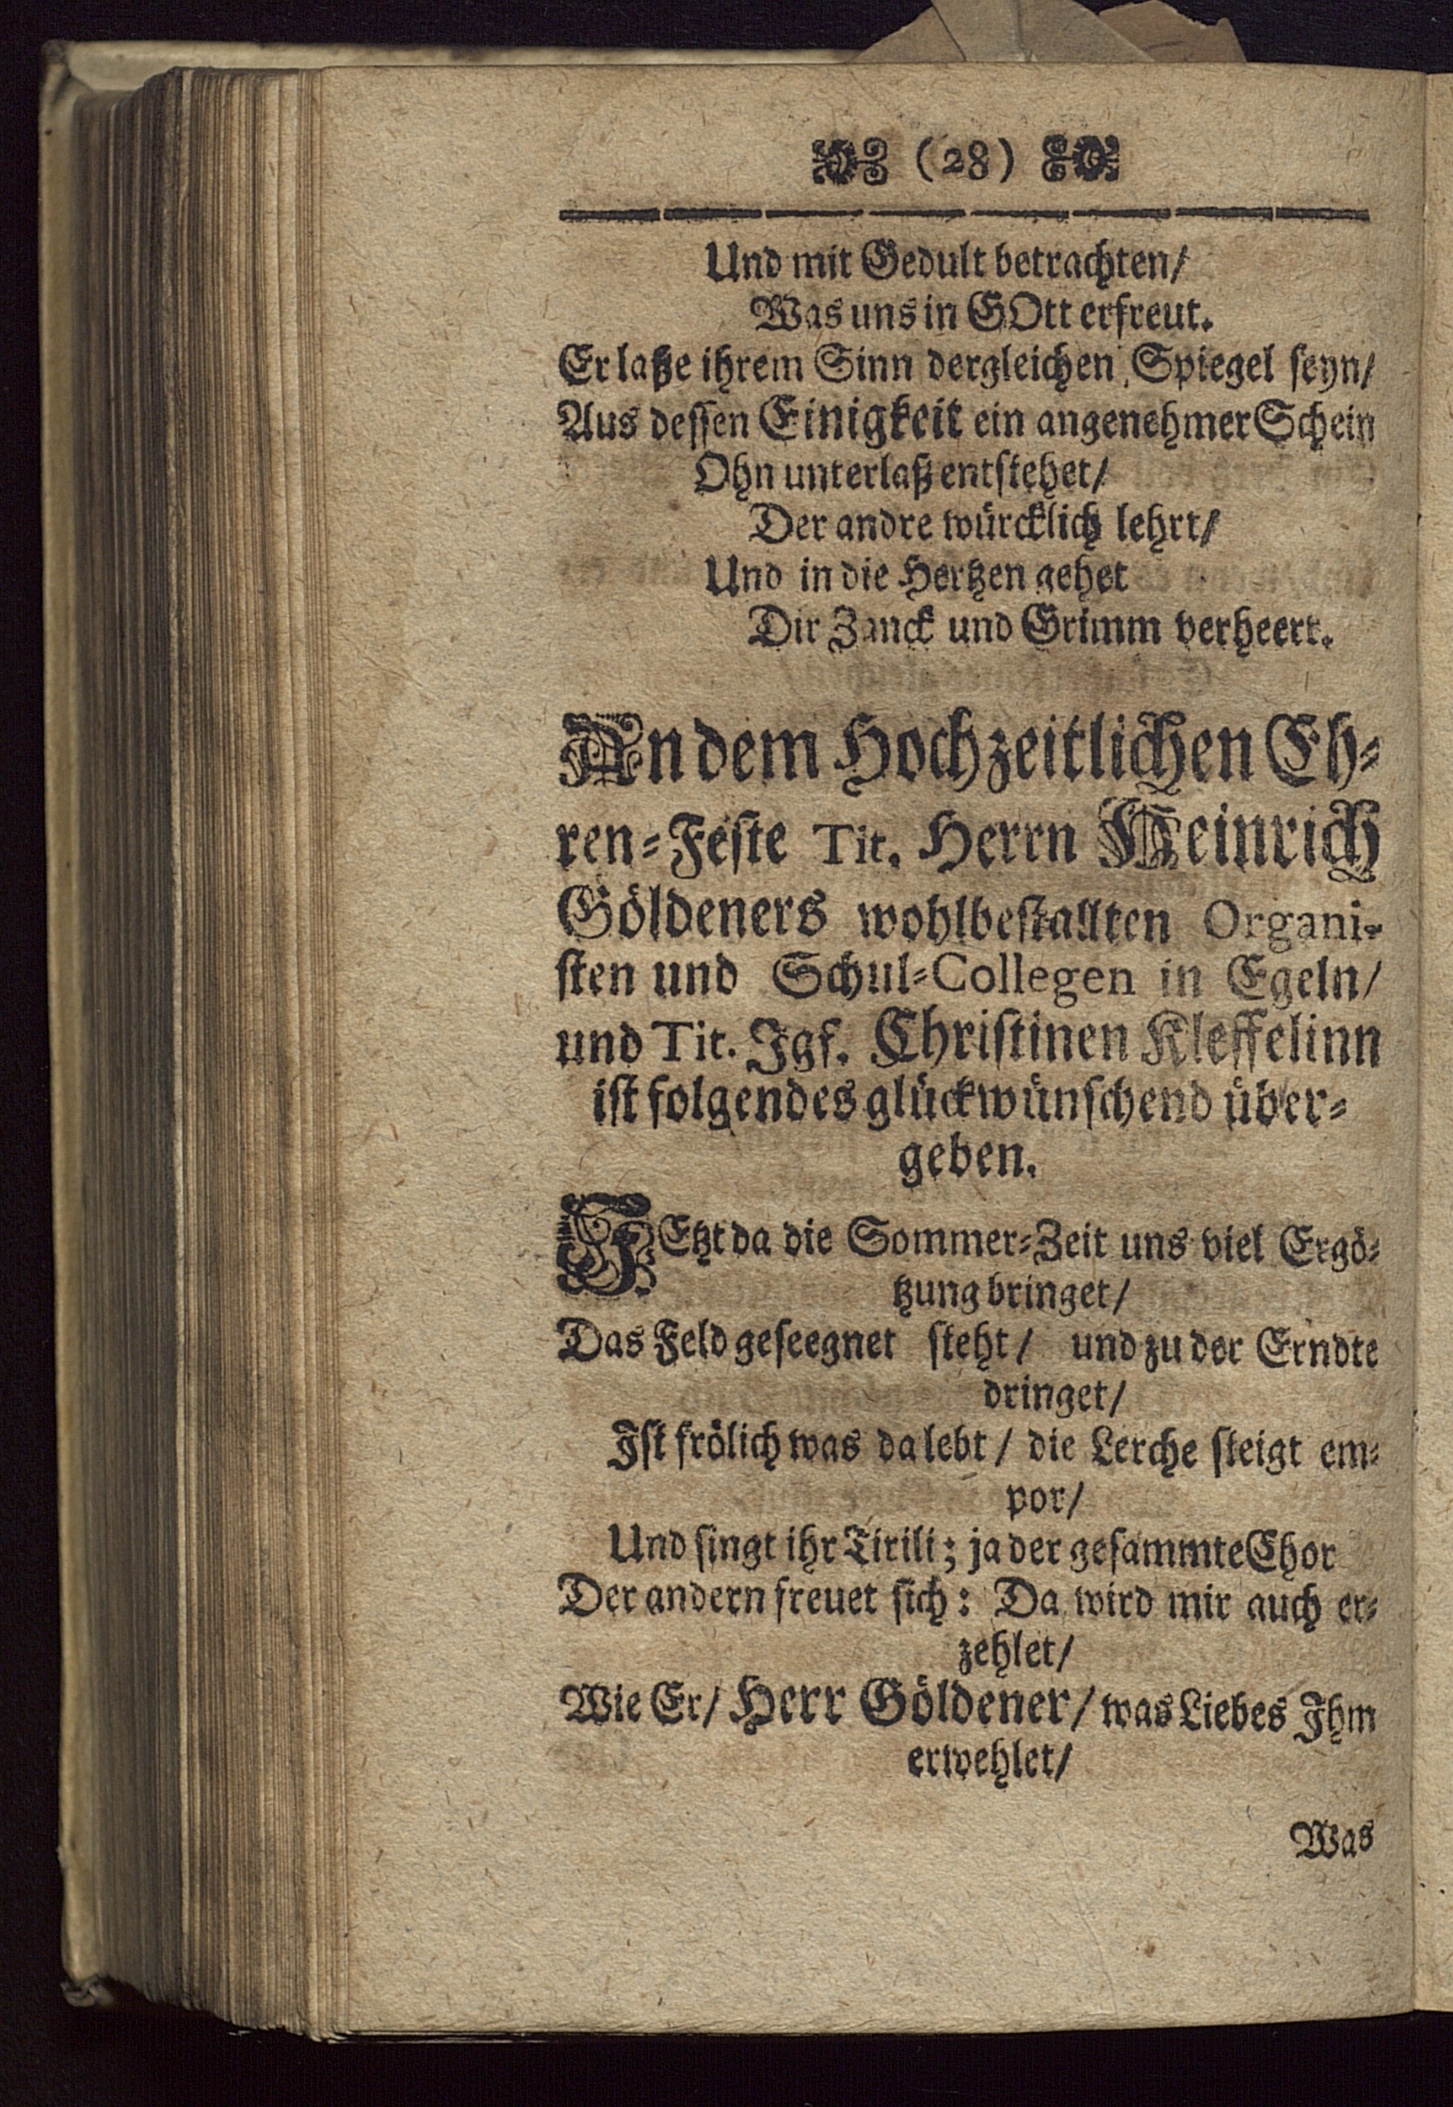 (28)
Und mit Gedult betrachten/
Was uns in GOtt erfreut.
Er laße ihrem Sinn dergleichen Spiegel seyn/
Aus dessen Einigkeit ein angenehmer Schein
Ohn unterlaß entstehet/
Der andre würcklich lehrt/
Und in die Hertzen gehet
Dir Zanck und Grimm verheert.
An dem Hochzeitlichen Eh-
ren-Feste Tit. Herrn Heinrich
Göldeners wohlbestallten Organi-
sten und Schul-Collegen in Egeln/
und Tit. Jgf. Christinen Kleffelinn
ist folgendes glückwünschend über-
geben.
JEtzt da die Sommer-Zeit uns viel Ergö-
tzung bringet/
Das Feld geseegnet steht/ und zu der Erndte
dringet/
Ist frölich was da lebt/ die Lerche steigt em-
por/
Und singt ihr Tirili; ja der gesammte Chor
Der andern freuet sich: Da wird mir auch er-
zehlet/
Wie Er/ Herr Göldener/ was Liebes Ihm
erwehlet/
Was